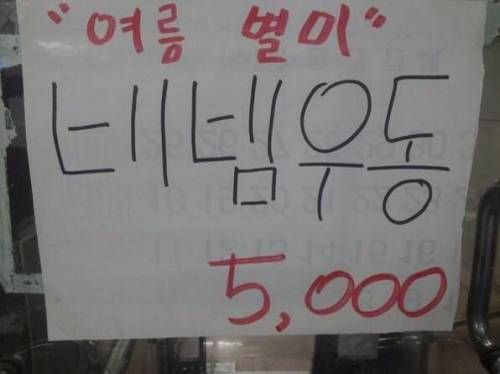 "여름 별미"
비빔우동
5,000